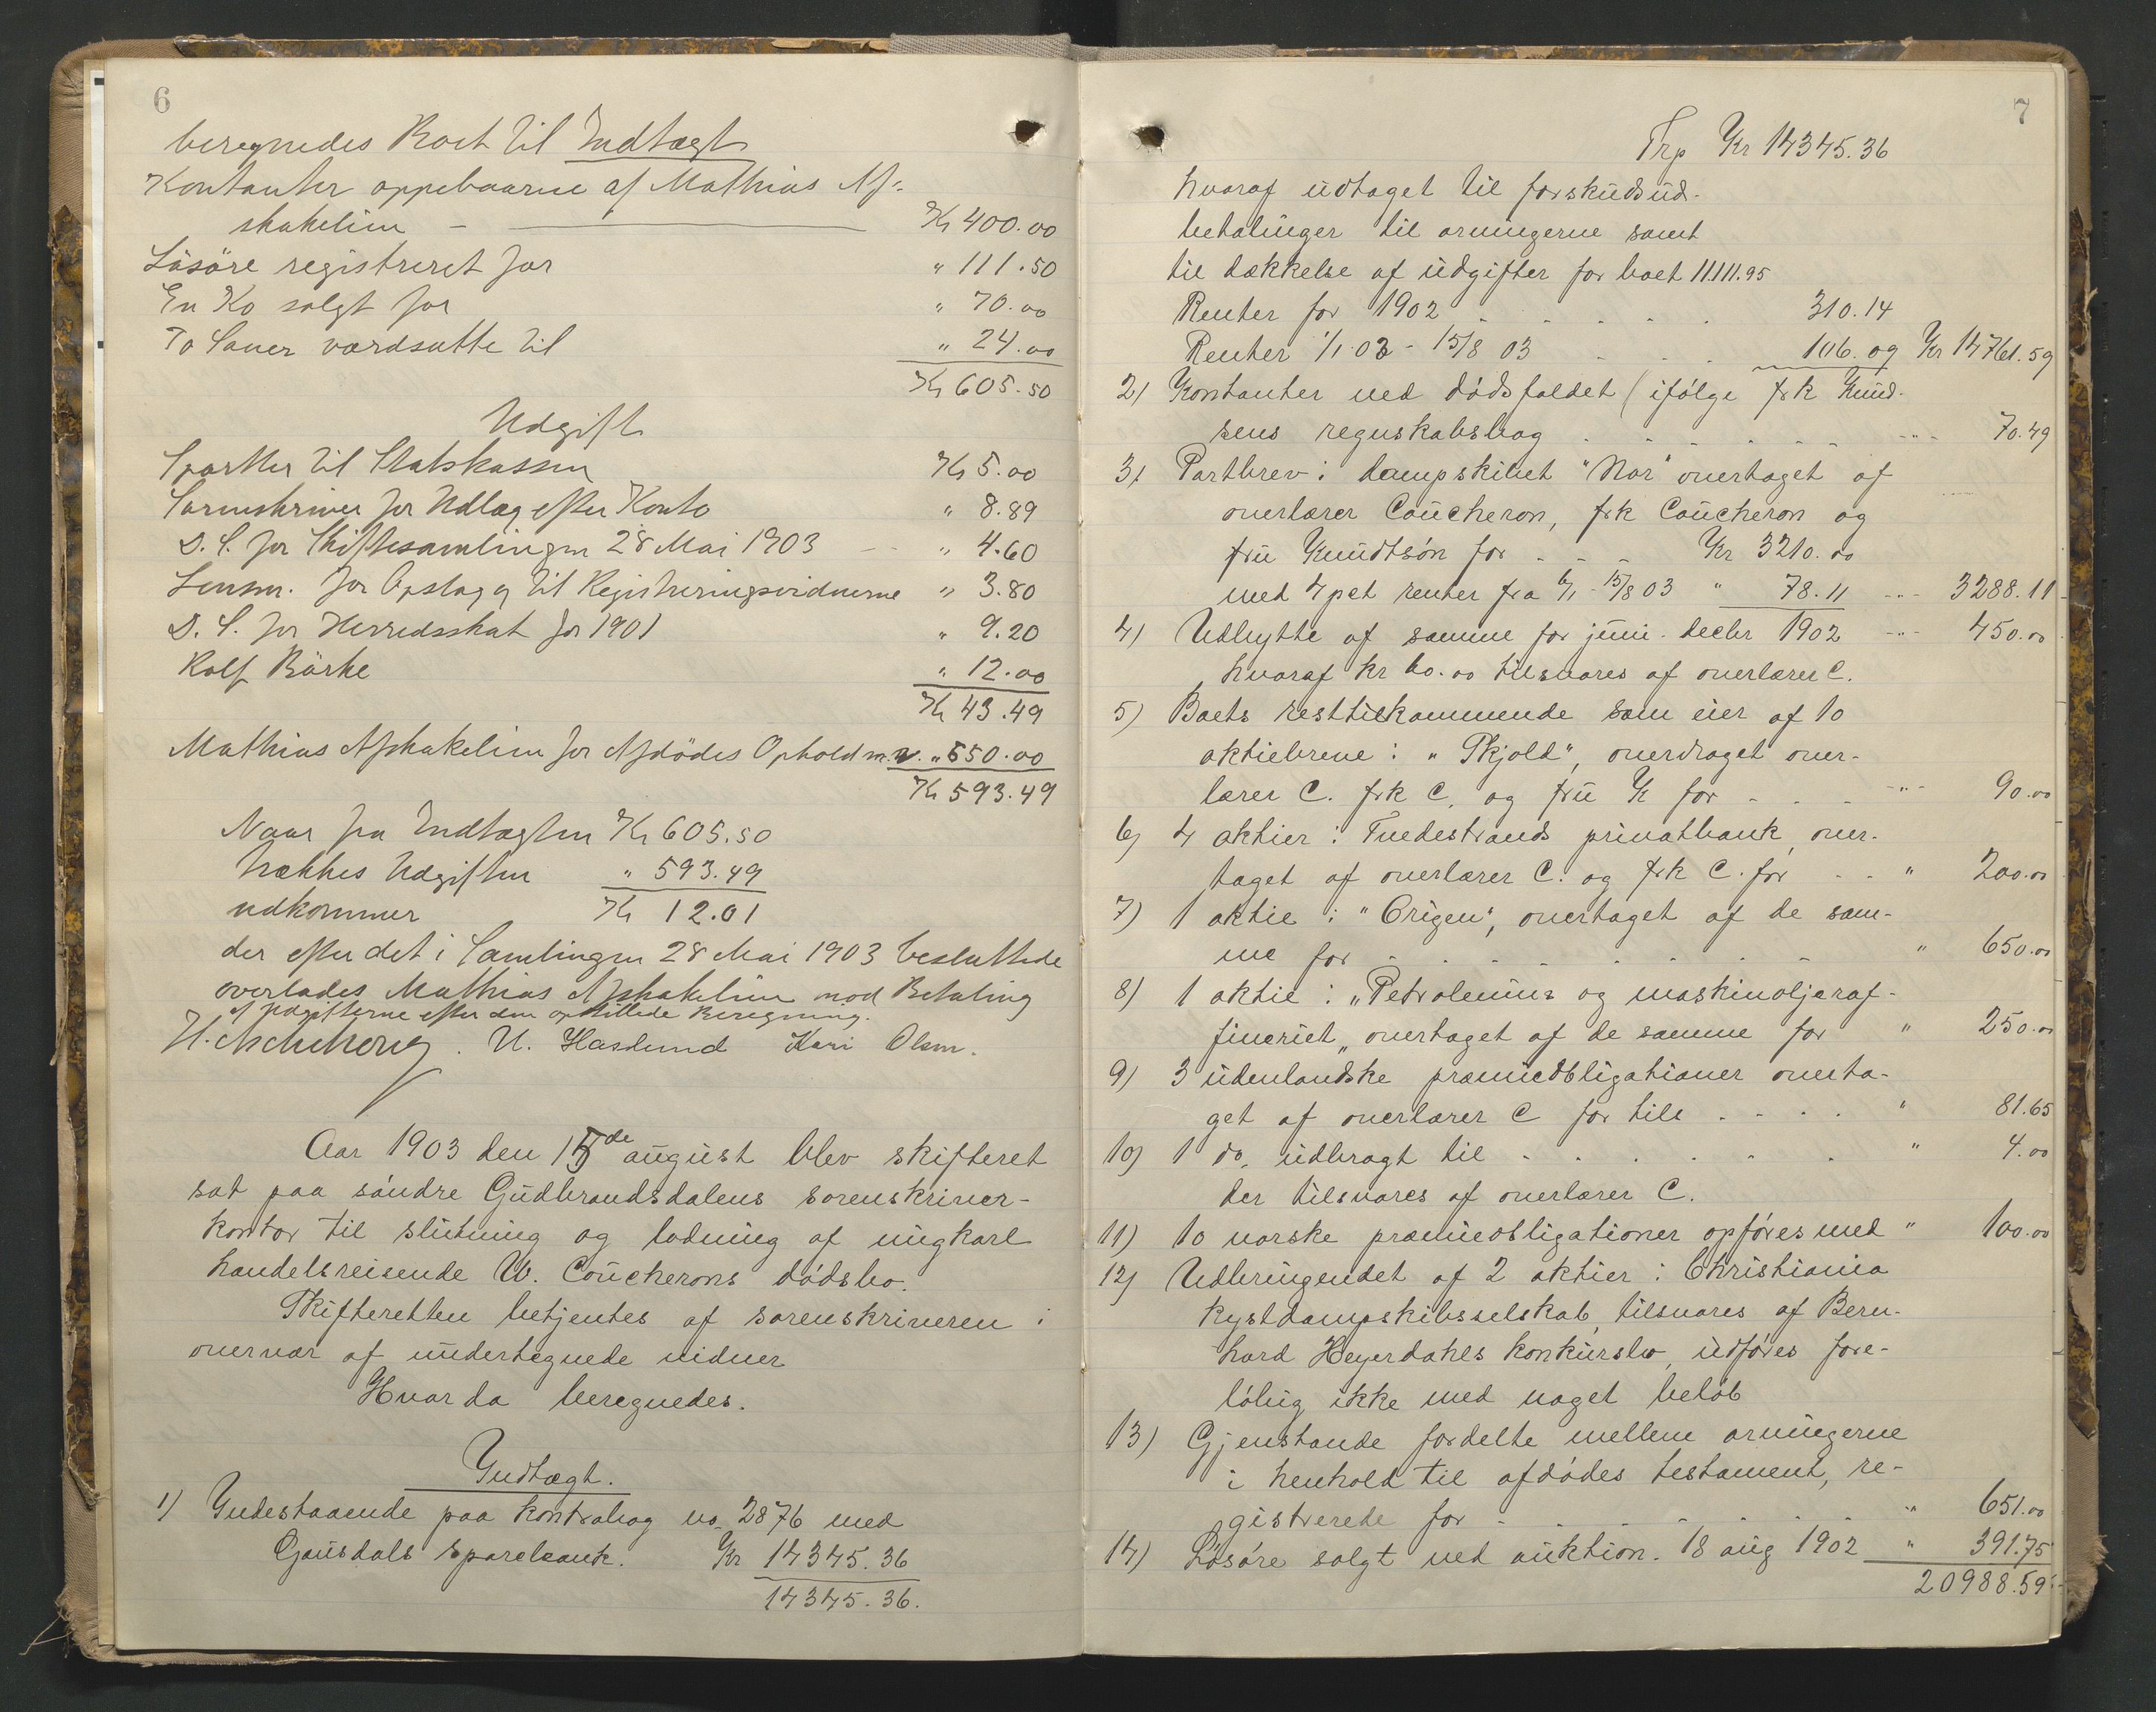 6
beregnedes Boet til Indtægt
Kontanter oppebaarne af Mathias Af-
skakelien - Kr 400.00
Lösöre registreret for " 111.50
En Ko solgt for " 70.00
To Sauer værdsatte til " 24.00
Kr 605.50
Udgift
Sportler til Statskassen Kr 5.00
Sorenskriver for Udlæg efter Konto " 8.89
D. S. for Skiftesamlingen 28 Mai 1903 - - " 4.60
Lensm. for Opslag og til Registreringsvidnerne " 3.80
D. S. for Herredsskat for 1901 " 9.20
Rolf Bårke " 12.00
Kr 43.49
Mathias Afskakelien for Afdödes Ophold m.v. " 550.00
Kr 593.49
Naar fra Indtægten Kr 605.50
trækkes Udgiften " 593.49
udkommer Kr 12.01
der efter det i Samlingen 28 Mai 1903 besluttede
overlades Mathias Afskakelien mod Betaling
af Udgifterne efter den opstillede Beregning.
U. Haslund Kari Olsen.
Aar 1903 den 15de august blev skifteret
sat paa söndre Gudbrandsdalens sorenskriver-
kontor til slutning og lodning af ungkarl
handelsreisende W. Coucherons dödsbo.
Skifteretten betjentes af sorenskriveren i
overvær af undertegnede vidner
Hvor da beregnedes.
Indtægt.
1) Indestaaende paa kontrabog no. 2876 med
Gausdals Sparebank. Kr 14345.36
14345.36.
7
Trp Kr 14345.36
hvoraf udtaget til forskudsud-
betalinger til arvingerne samt
til dækkelse af udgifter for boet 11.111.95
Renter for 1902 . . . . . 310.14
Renter 1/1 03 - 15/8 03 . . . 106.09 Kr 14761.59
2) Kontanter ved dödsfaldet (ifölge frk Knud-
sens regnskabsbog . . . . . . -"- 70.49
3) Partbrev i dampskibet "Nor" overtaget af
overlærer Coucheron, frk Coucheron og
fru Knudtsön for - - - Kr 3210.00
med 4 pct renter fra 6/1 - 15/8 03 " 78.11 -"- 3288.11
4) Udbytte af samme for juni - decbr 1902 -"- 450.00
hvoraf kr 60.00 tilsvares af overlærer C.
5) Boets resttilkommende som eier af 10
aktiebreve i "Skjold", overdraget over-
lærer C. frk C. og fru K for . . . -"- 90.00
6) 4 aktier i Tvedestrands privatbank, over-
taget af overlærer C. og frk C. for . . " 200.00
7) 1 aktie i "Origen", overtaget af de sam-
me for . . . . . . . . " 650.00
8) 1 aktie i "Petroleums og maskinoljeraf-
fineriet" overtaget af de samme for " 250.00
9) 3 udenlandske præmieobligationer overta-
get af overlærer C for tils . . . . " 81.65
10) 1 do. udbragt til . . . . . . " 4.00
der tilsvares af overlærer C.
11) 10 norske præmieobligationer opföres med " 100.00
12) Udbringendet af 2 aktier i Christiania
kystdampskibsselskab, tilsvares af Bern-
hard Heyerdahls konkursbo, udföres fore-
löbig ikke med noget belöb
13) Gjenstande fordelte mellem arvingerne
i henhold til afdödes testament, re-
gistrerede for . . . . . . . " 651.00
14) Lösöre solgt ved auktion. 18 aug 1902 " 391.75
20988.59